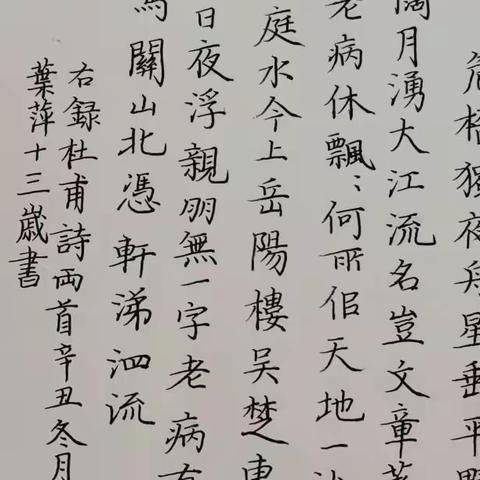 危檣獨夜舟星垂平野
闊月湧大江流名豈文章著
老病休飄〻何所佀天地一沙
庭水今上岳陽樓吳楚東
日夜浮親朋無一字老病有
馬關山北憑軒涕泗流
右録杜甫詩兩首辛丑冬月
葉萍十三歲書